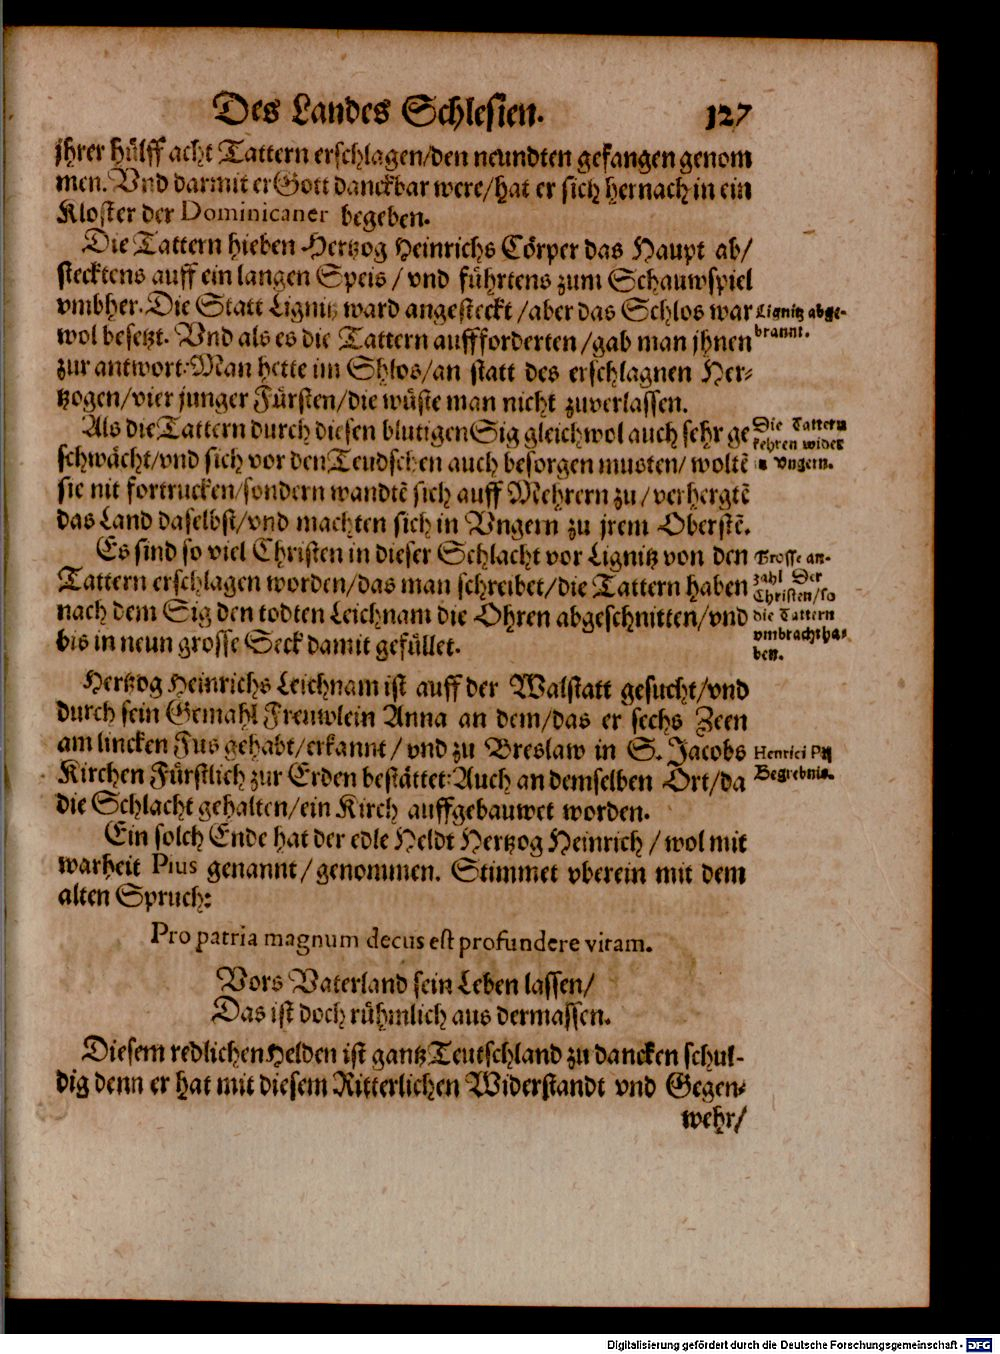 Des Landes Schlesien. 127
jhrer hülff acht Tattern erschlagen/den neundten gefangen genom
men. Vnd darmit er Gott danckbar were/hat er sich hernach in ein
Kloster der Dominicaner begeben.
Die Tattern hieben Hertzog Heinrichs Cörper das Haupt ab/
stecktens auff ein langen Speis / vnd führtens zum Schauwspiel
vmbher. Die Statt Lignitz ward angesteckt / aber das Schlos war
Lignitz abge-
brannt.
wol besetzt. Vnd als es die Tattern auffforderten / gab man jhnen
zur antwort: Man hette im Shlos/an statt des erschlagnen Her-
tzogen/vier junger Fürsten/die wüste man nicht zuverlassen.
Als die Tattern durch diesen blutigen Sig gleichwol auch sehr ge
Die Tattern
kehren wider
in Vngern.
schwächt/vnd sich vor den Teudschen auch besorgen musten/ woltẽ
sie nit fortrucken/sondern wandtẽ sich auff Mehrern zu / verhergtẽ
das Land daselbst/vnd machten sich in Vngern zu jrem Oberstẽ.
Es sind so viel Christen in dieser Schlacht vor Lignitz von den
Grosse an-
zahl Der
Christen/so
die Tattern
vmbracht ha-
ben.
Tattern erschlagen worden/das man schreibet/die Tattern haben
nach dem Sig den todten Leichnam die Ohren abgeschnitten/vnd
bis in neun grosse Seck damit gefüllet.
Hertzog Heinrichs Leichnam ist auff der Walstatt gesucht/vnd
durch sein Gemahl Freuwlein Anna an dem/das er sechs Zeen
am lincken Fus gehabt/erkannt / vnd zu Breslaw in S. Jacobs
Henrici Pij
Begrebnis.
Kirchen Fürstlich zur Erden bestättet: Auch an demselben Ort/da
die Schlacht gehalten/ein Kirch auffgebauwet worden.
Ein solch Ende hat der edle Heldt Hertzog Heinrich / wol mit
warheit Pius genannt / genommen. Stimmet vberein mit dem
alten Spruch:
Pro patria magnum decus est profundere vitam.
Vors Vaterland sein Leben lassen/
Das ist doch rühmlich aus dermassen.
Diesem redlichen Helden ist gantz Teutschland zu dancken schul-
dig denn er hat mit diesem Ritterlichen Widerstandt vnd Gegen-
wehr/
Digitalisierung gefördert durch die Deutsche Forschungsgemeinschaft - DFG